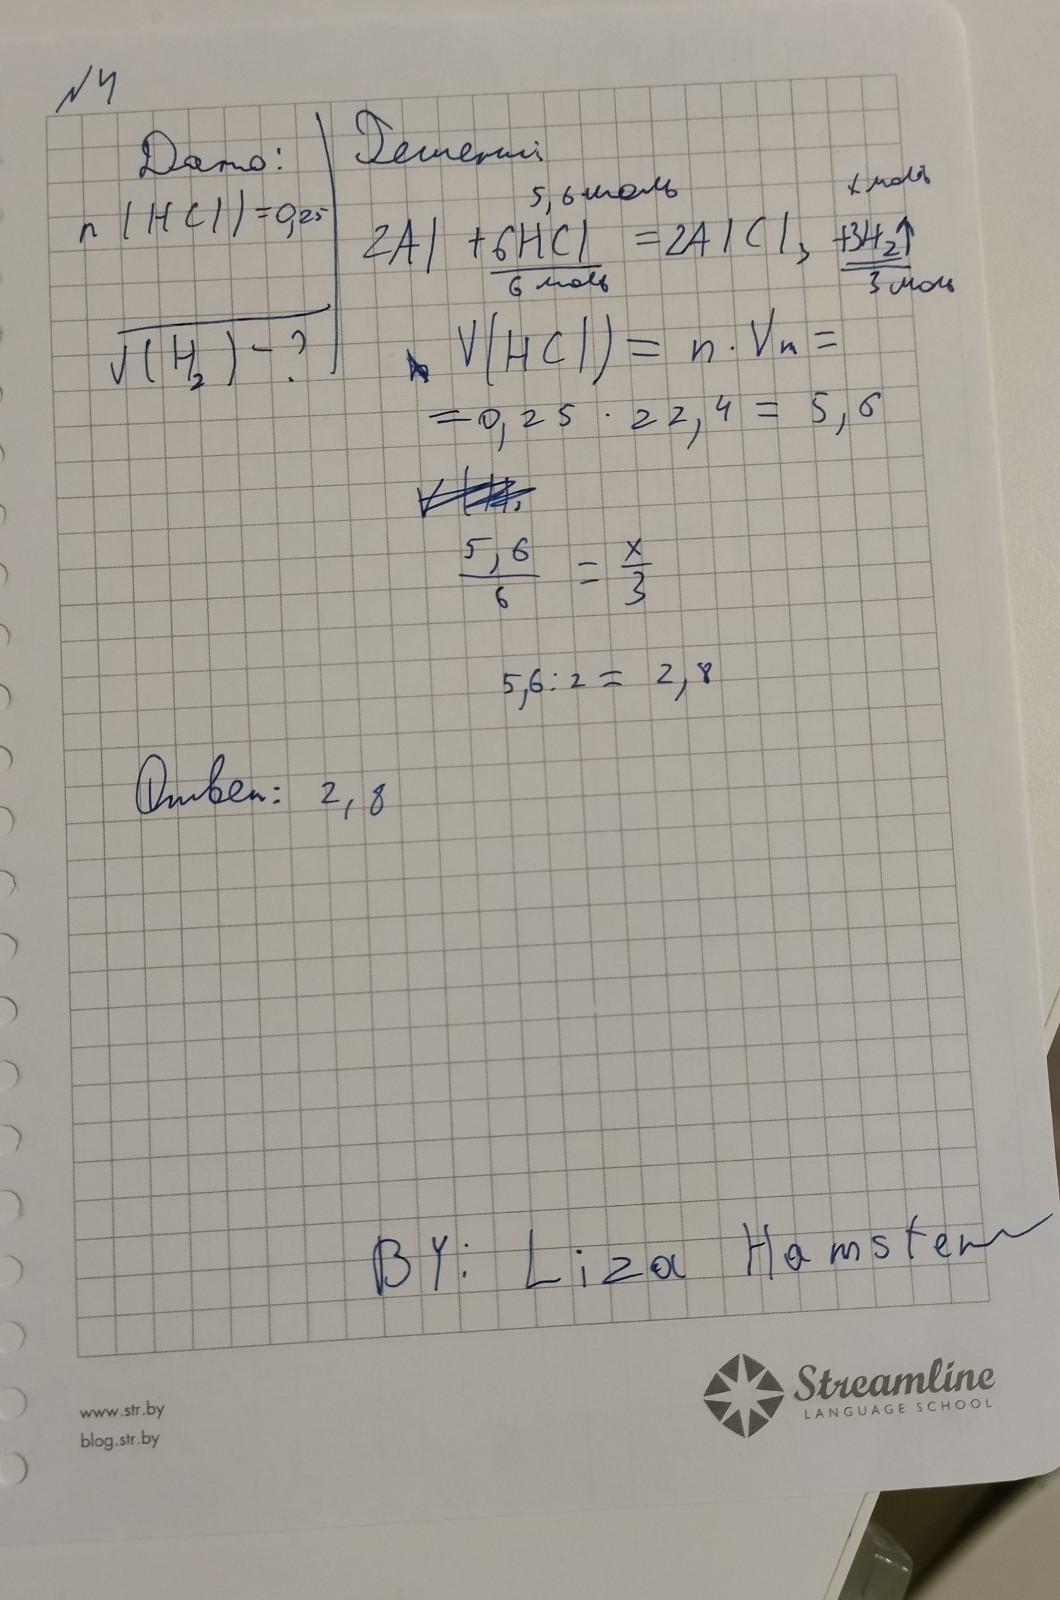 N4
Дано:
Решени
n(HCl)=0,25
5,6 моль
x моль
2Al + 6HCl = 2AlCl3 +3H2↑
6 моль
3 моль
V(H2) - ?
V(HCl) = n · Vm =
= 0,25 · 22,4 = 5,6
5,6/6 = x/3
5,6:2 = 2,8
Ответ: 2,8
BY: Liza Hamster
Streamline
LANGUAGE SCHOOL
www.str.by
blog.str.by